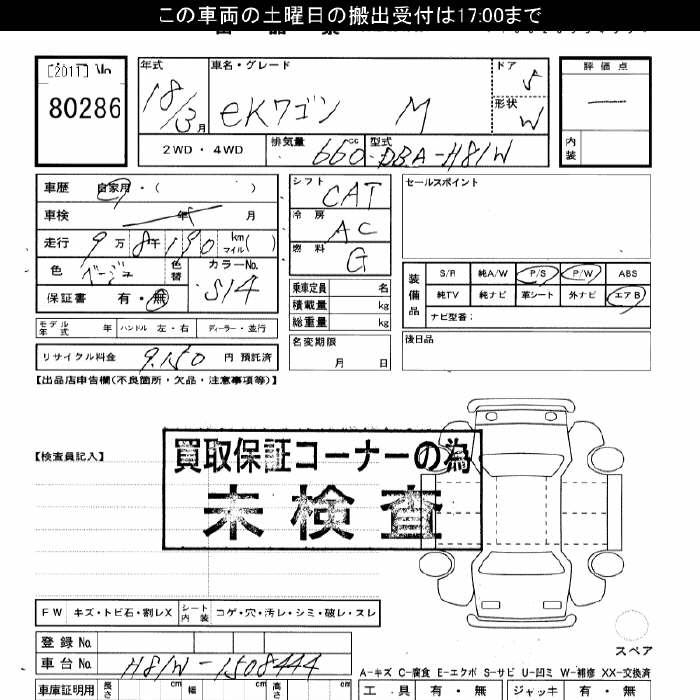 この車両の土曜日の搬出受付は17:00まで
[2011] No
80286
年式 車名・グレード ドア 評価点
18/3月 eKワゴン M 5
形状 W
2WD・4WD 排気量 660cc 型式 DBA-H81W
内装
車歴 自家用・( )
シフト CAT
セールスポイント
車検 年 月
冷房 AC
走行 9万8千190 km マイル( )
燃料 G
色 ベージュ 色替 カラーNo. S14
装備品 S/R 純A/W P/S P/W ABS
純TV 純ナビ 革シート 外ナビ エアB
ナビ型番:
保証書 有・無
乗車定員 名
積載量 kg
総重量 kg
モデル年式 年 ハンドル 左・右 ディーラー・並行
名変期限 月 日
後日品
リサイクル料金 9,150 円 預託済
【出品店申告欄(不良箇所・欠品・注意事項等)】
【検査員記入】
買取保証コーナーの為
未検査
FW キズ・トビ石・割レX シート内装 コゲ・穴・汚レ・シミ・破レ・スレ
スペア
登録No
車台No H81W-1508444
A-キズ C-腐食 E-エクボ S-サビ U-凹ミ W-補修 XX-交換済
車庫証明用 長さ cm 幅 cm 高さ cm
工具 有・無 ジャッキ 有・無